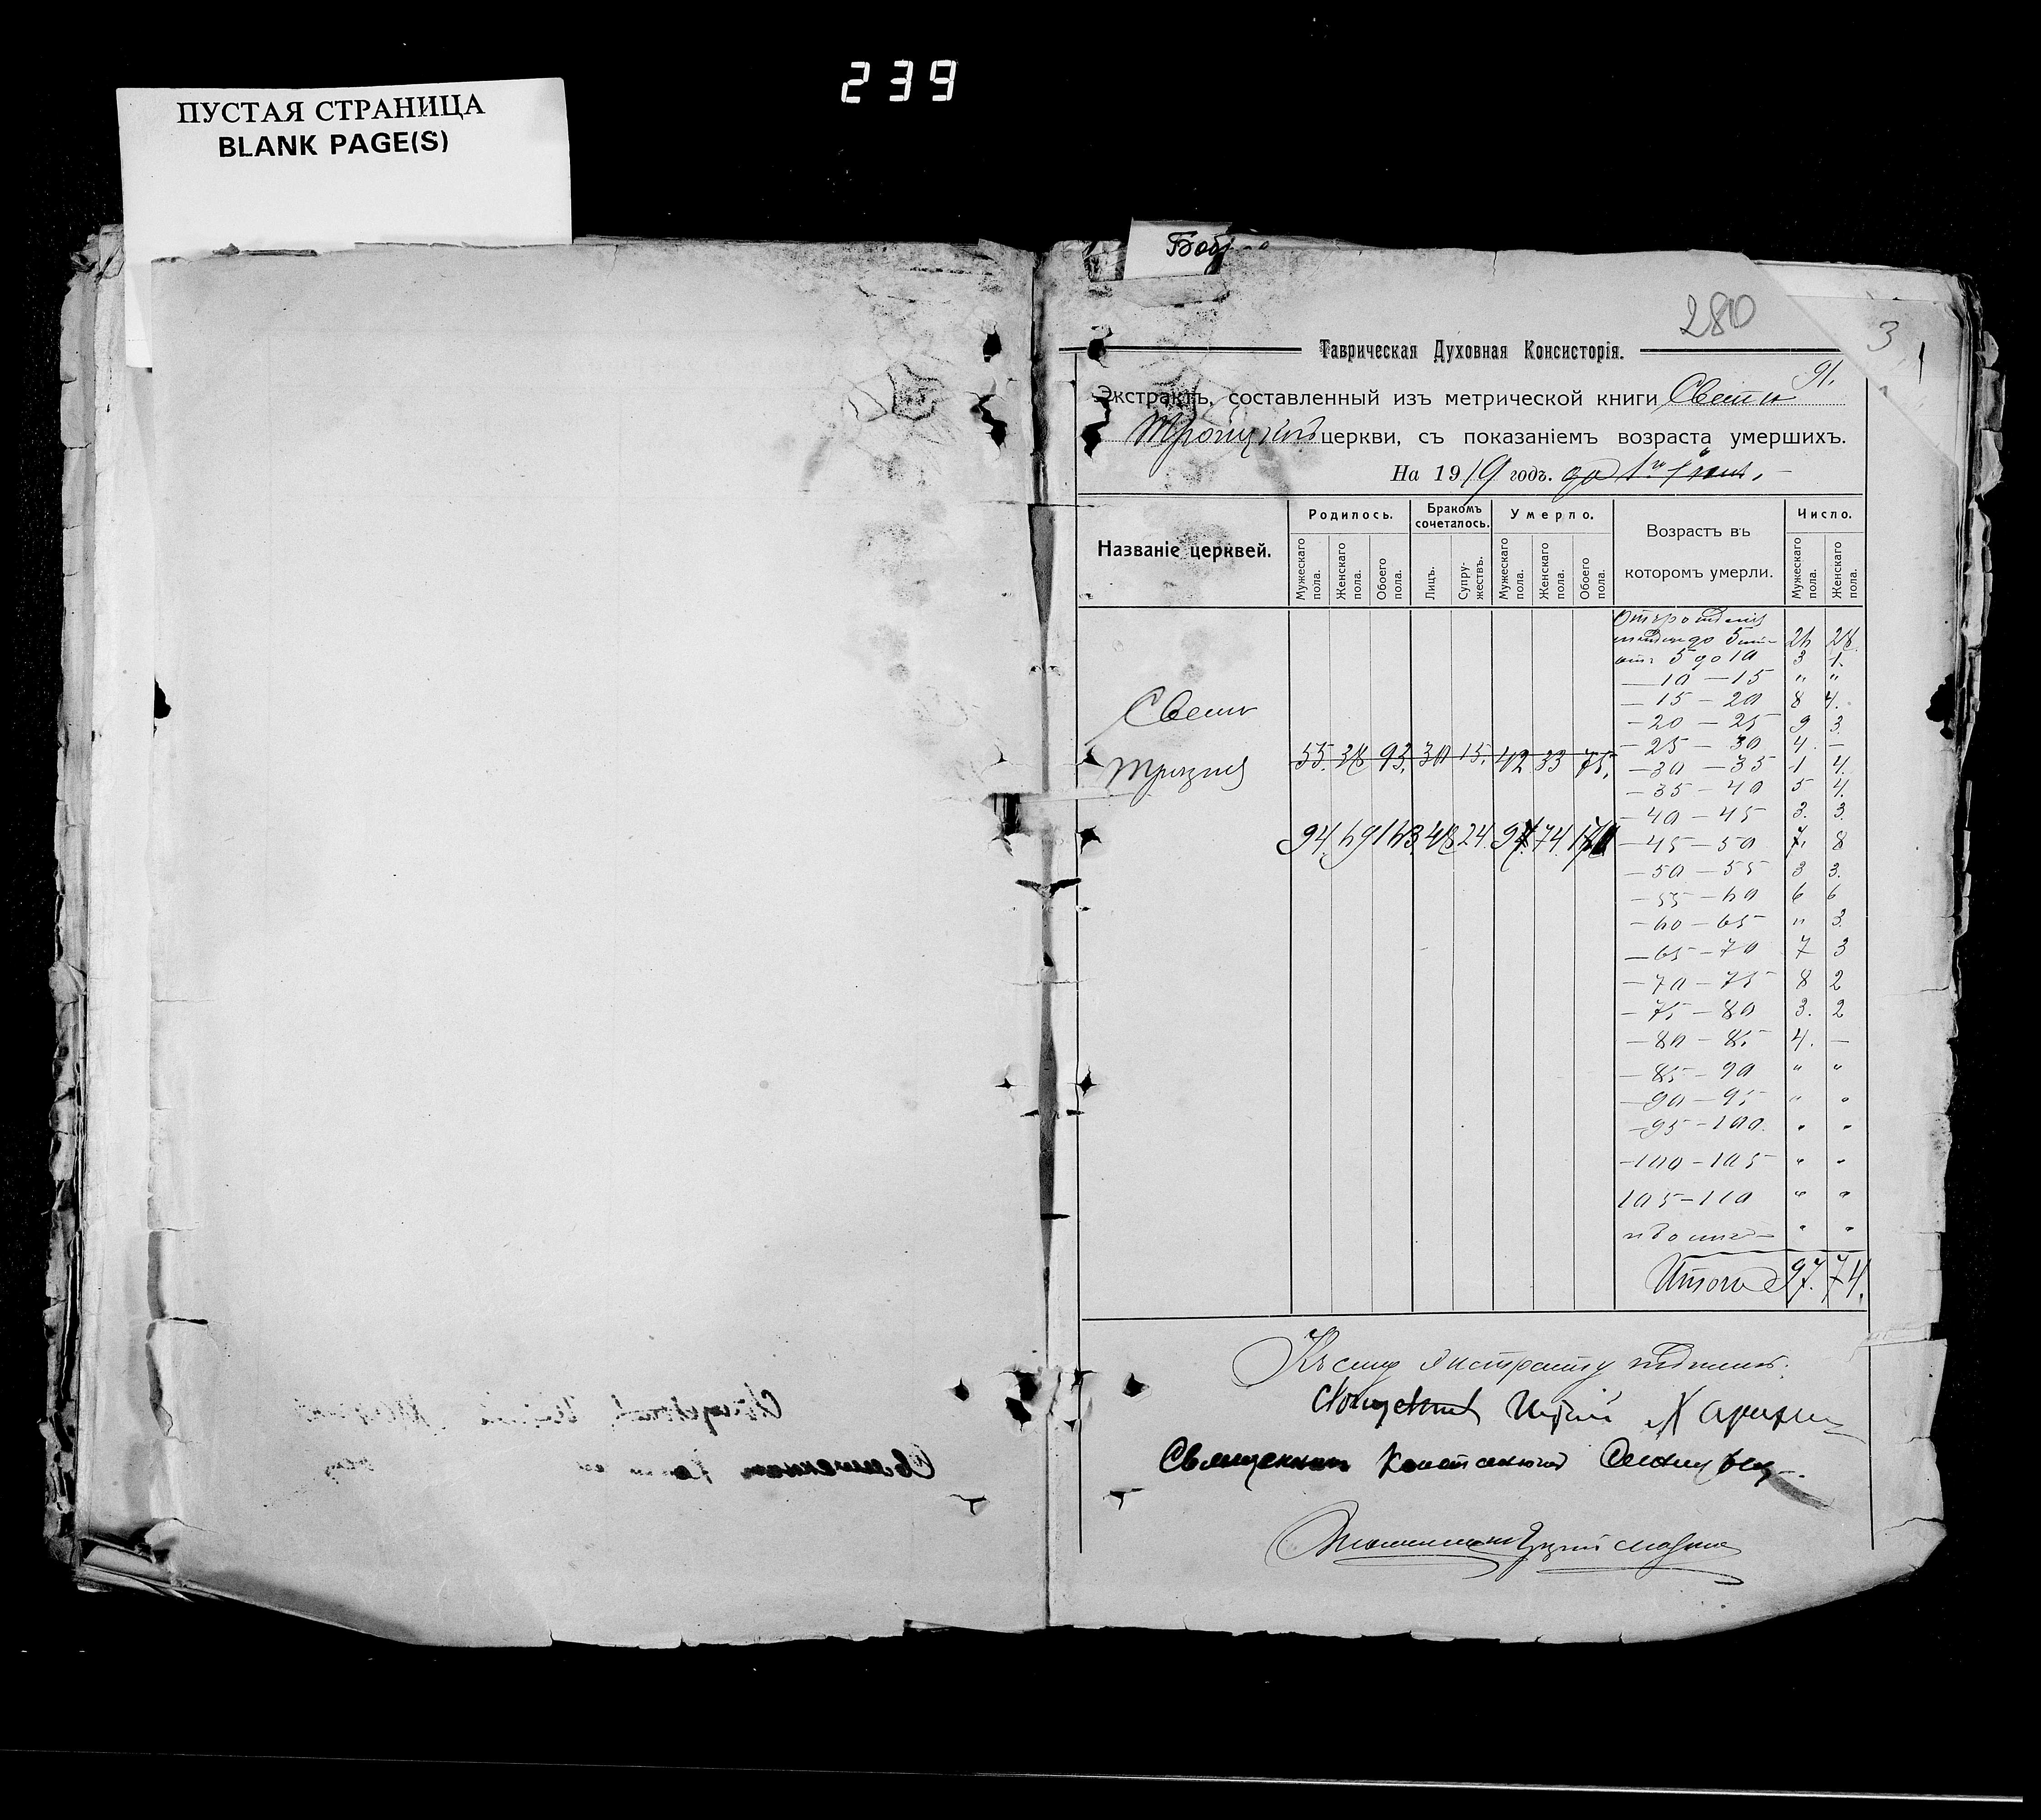 239
ПУСТАЯ СТРАНИЦА
BLANK PAGE(S)
280
3
91.
Таврическая Духовная Консисторія.
Экстрактъ, составленный изъ метрической книги Свято
Троицкой церкви, съ показаніемъ возраста умершихъ.
На 1919 годъ.
Названіе церквей.
Родилось.
Бракомъ сочеталось.
Умерло.
Возрастъ въ которомъ умерли.
Число.
Мужескаго пола.
Женскаго пола.
Обоего пола.
Лицъ.
Супружествъ.
Мужескаго пола.
Женскаго пола.
Обоего пола.
Мужескаго пола.
Женскаго пола.
Отъ рожденія
до 5 26 28.
отъ 5 до 10 3 1.
— 10 — 15 " "
— 15 — 20 8 4.
— 20 — 25 9 3.
Свято
— 25 — 30 4. —
Троицкая 55. 38 93. 30 15. 42 33 75.
— 30 — 35 1 4.
— 35 — 40 5 4.
— 40 — 45 3. 3.
94. 69 163. 48 24. 97. 74. 171
— 45 — 50 7. 8
— 50 — 55 3 3.
— 55 — 60 6 6
— 60 — 65 " 3.
— 65 — 70 7 3
— 70 — 75 8 2
— 75 — 80 3. 2
— 80 — 85 4. —
— 85 — 90 " "
— 90 — 95 " "
— 95 — 100. " "
— 100 — 105 " "
105 — 110 " "
" "
Итого 97. 74.
Къ сему экстракту
Священникъ
Священникъ